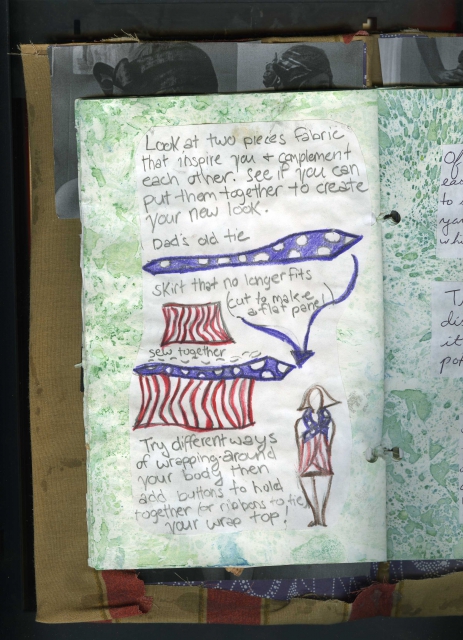 Look at two pieces fabric
that inspire you & complement
each other. See if you can
put them together to create
your new look.
Dad's old tie
skirt that no longer fits
(cut to make
a flat panel)
sew together
Try different ways
of wrapping around
your body then
add buttons to hold
together (or ribbons to tie)
your wrap top!
of
to
it